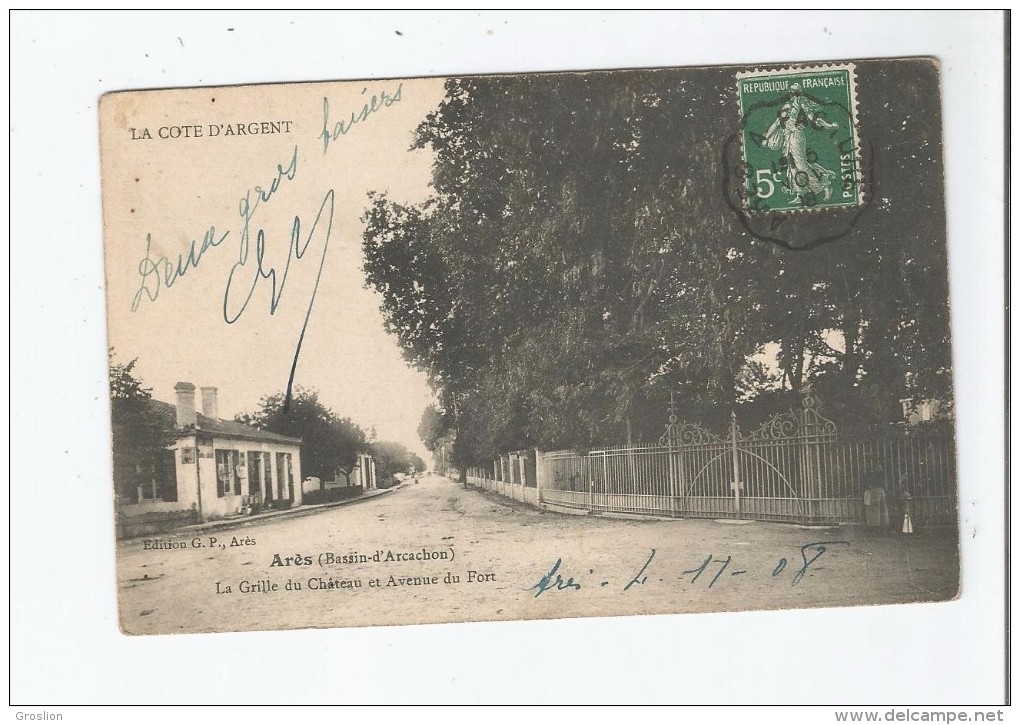 LA COTE D'ARGENT
Deux gros baisers
REPUBLIQUE FRANÇAISE
5c
POSTES
Edition G. P., Arès
Arès (Bassin-d'Arcachon)
La Grille du Château et Avenue du Fort
Arès - L - 11 - 08
Groslion
www.delcampe.net